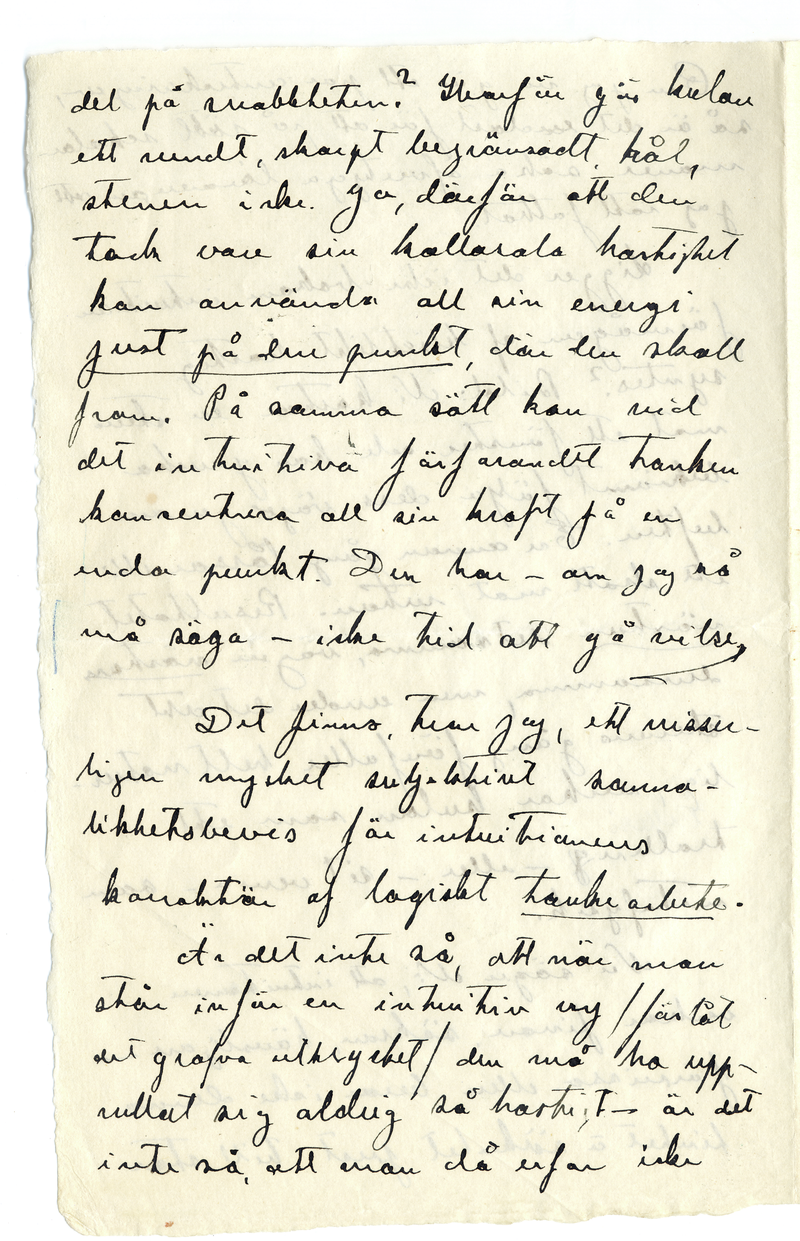 det på snabbheten? Hvarför gör kulan
ett rundt, skarpt begränsadt hål,
stenen icke. Jo, därför att den
tack vare sin kollosala hastighet
kan använda all sin energi
just på den punkt, där den skall
fram. På samma sätt kan vid
det intuitiva förfarandet tanken
konsentrera all sin kraft på en
enda punkt. Den har – om jag så
må säga – icke tid att gå vilse.
Det finns, tror jag, ett visser-
ligen mycket subjektivt sanno-
likhetsbevis för intuitionens
karaktär af logiskt tankearbete.
Är det inte så, att när man
står inför en intuitiv vy / förlåt
det grofva uttrycket / den må ha upp-
rullat sig aldrig så hastigt – är det
inte så, att man då erfar icke